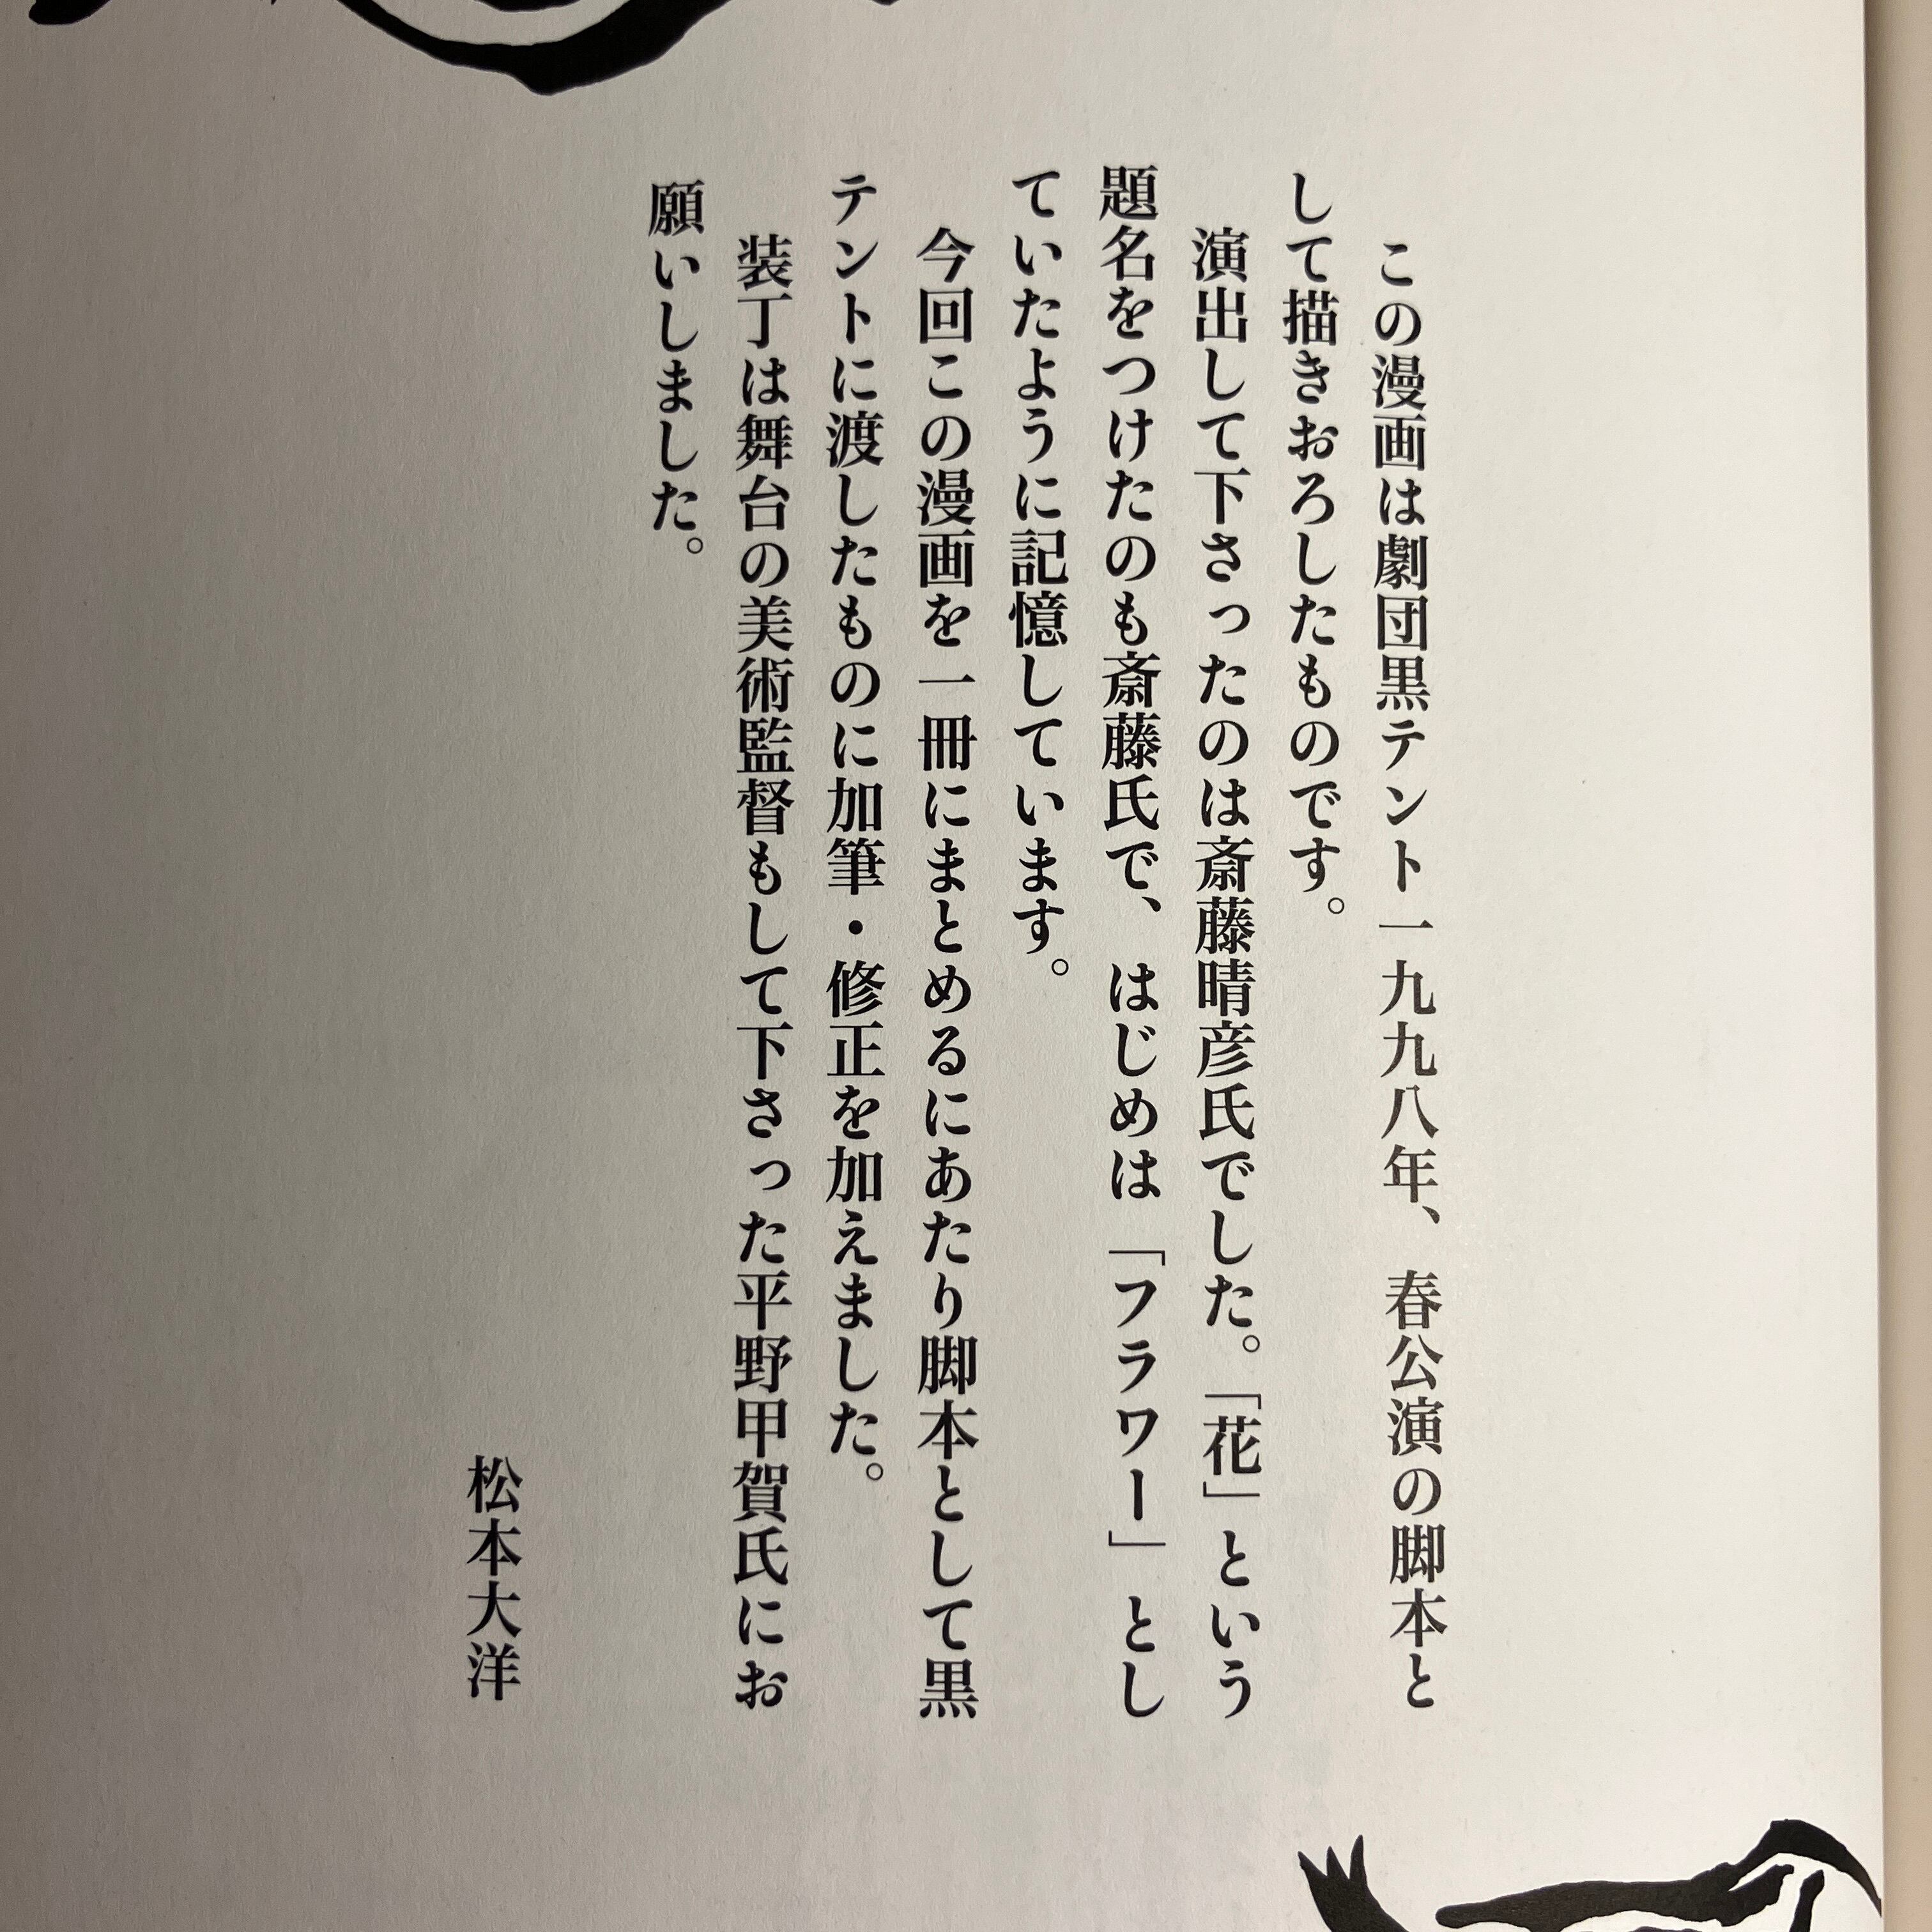 この漫画は劇団黒テント一九九八年、春公演の脚本と
して描きおろしたものです。
演出して下さったのは斎藤晴彦氏でした。「花」という
題名をつけたのも斎藤氏で、はじめは「フラワー」とし
ていたように記憶しています。
今回この漫画を一冊にまとめるにあたり脚本として黒
テントに渡したものに加筆・修正を加えました。
装丁は舞台の美術監督もして下さった平野甲賀氏にお
願いしました。
松本大洋